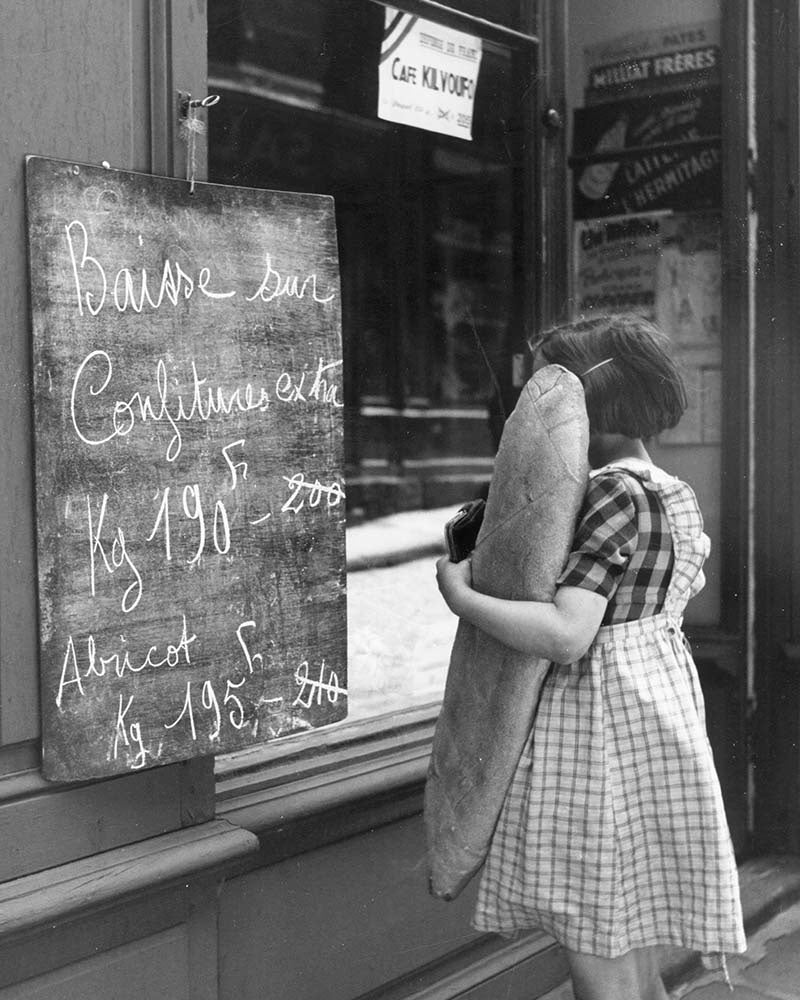 Baisse sur
Confitures extra
Kg 190 Fr - 200
Abricot Fr
Kg 195 - 210
CAFE KILVOUFO
PATES
MILLIAT FRÈRES
LAIT
L'HERMITAGE